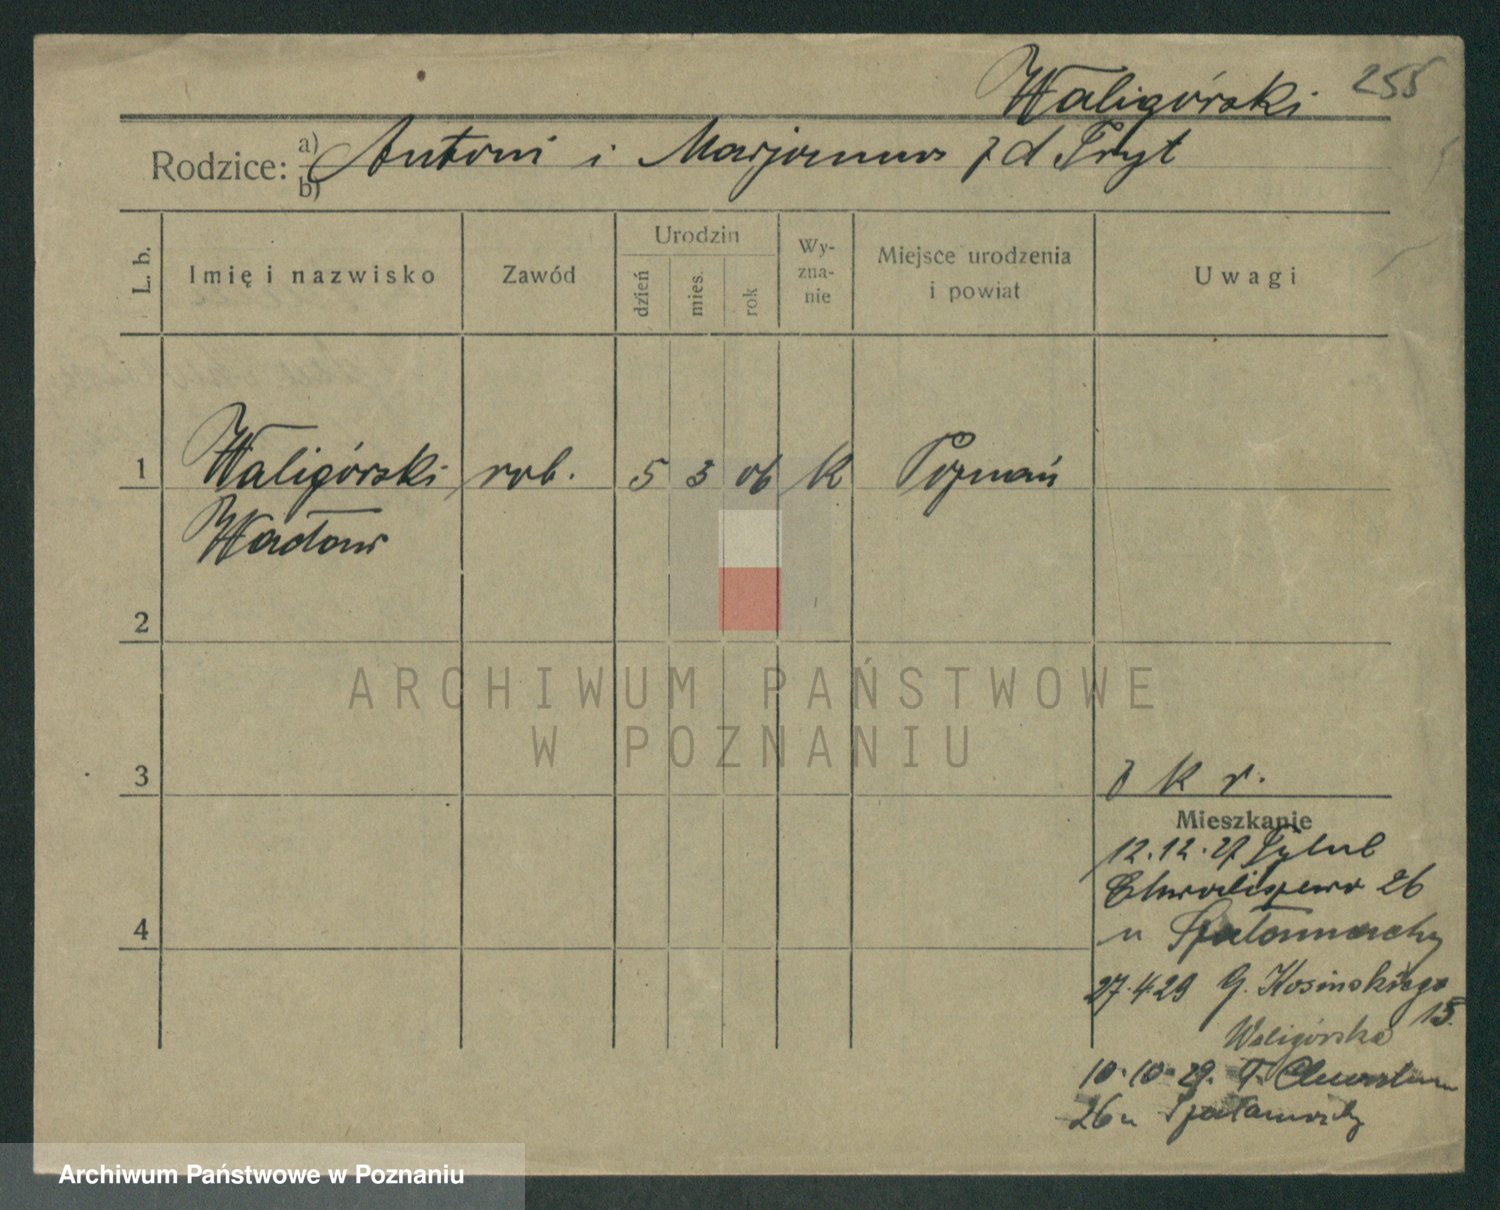 Waligórski 255
Rodzice: a) Antoni i Marjanna z d Fryt
b)
L. b. Imię i nazwisko Zawód Urodzin dzień mies. rok Wy-zna-nie Miejsce urodzenia i powiat Uwagi
1 Waligórski rob. 5 3 06 K Poznań
Wacław
2
ARCHIWUM PAŃSTWOWE
W POZNANIU
3
K r.
Mieszkanie
12.12.27
26
4 u
27.4.29 G. Kosińskiego
15.
Waligórska
10.10.29.
26 u
Archiwum Państwowe w Poznaniu